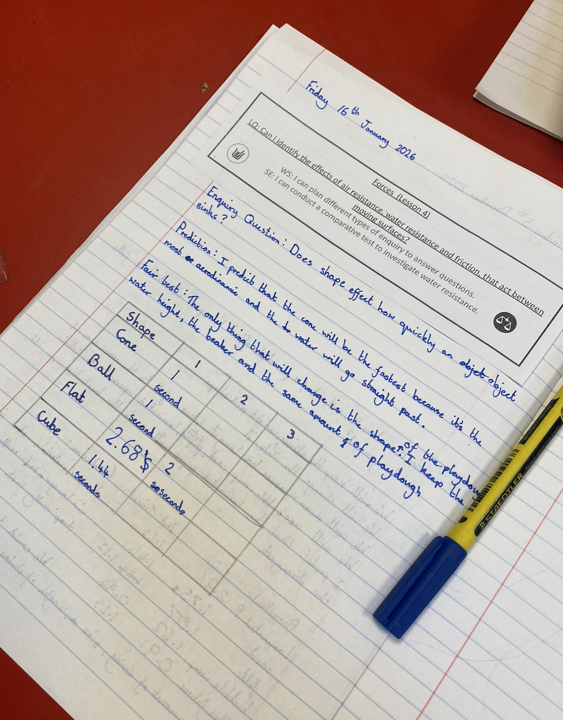 Friday 16th January 2026
Forces (Lesson 4)
LO: Can I identify the effects of air resistance, water resistance and friction, that act between
moving surfaces?
WS: I can plan different types of enquiry to answer questions.
SE: I can conduct a comparative test to investigate water resistance.
Enquiry Question: Does shape effect how quickly an object object
sinks?
Prediction: I predict that the cone will be the fastest because it's the
most aerodinamic and the water will go straight past.
Fair test: The only thing that will change is the shape of the playdough. I keep the
water height, the beaker and the same amount of playdough
Shape 1 2 3
Cone 1 second
Ball 1 second
Flat 2.68 s 2 seconds
Cube 1.44 seconds
STAEDTLER